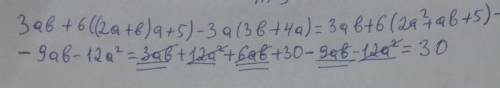 3ab + 6((2a+b)a+5) - 3a(3b+4a) = 3ab+6(2a²+ab+5) -
- 9ab - 12a² = 3ab + 12a² + 6ab + 30 - 9ab - 12a² = 30